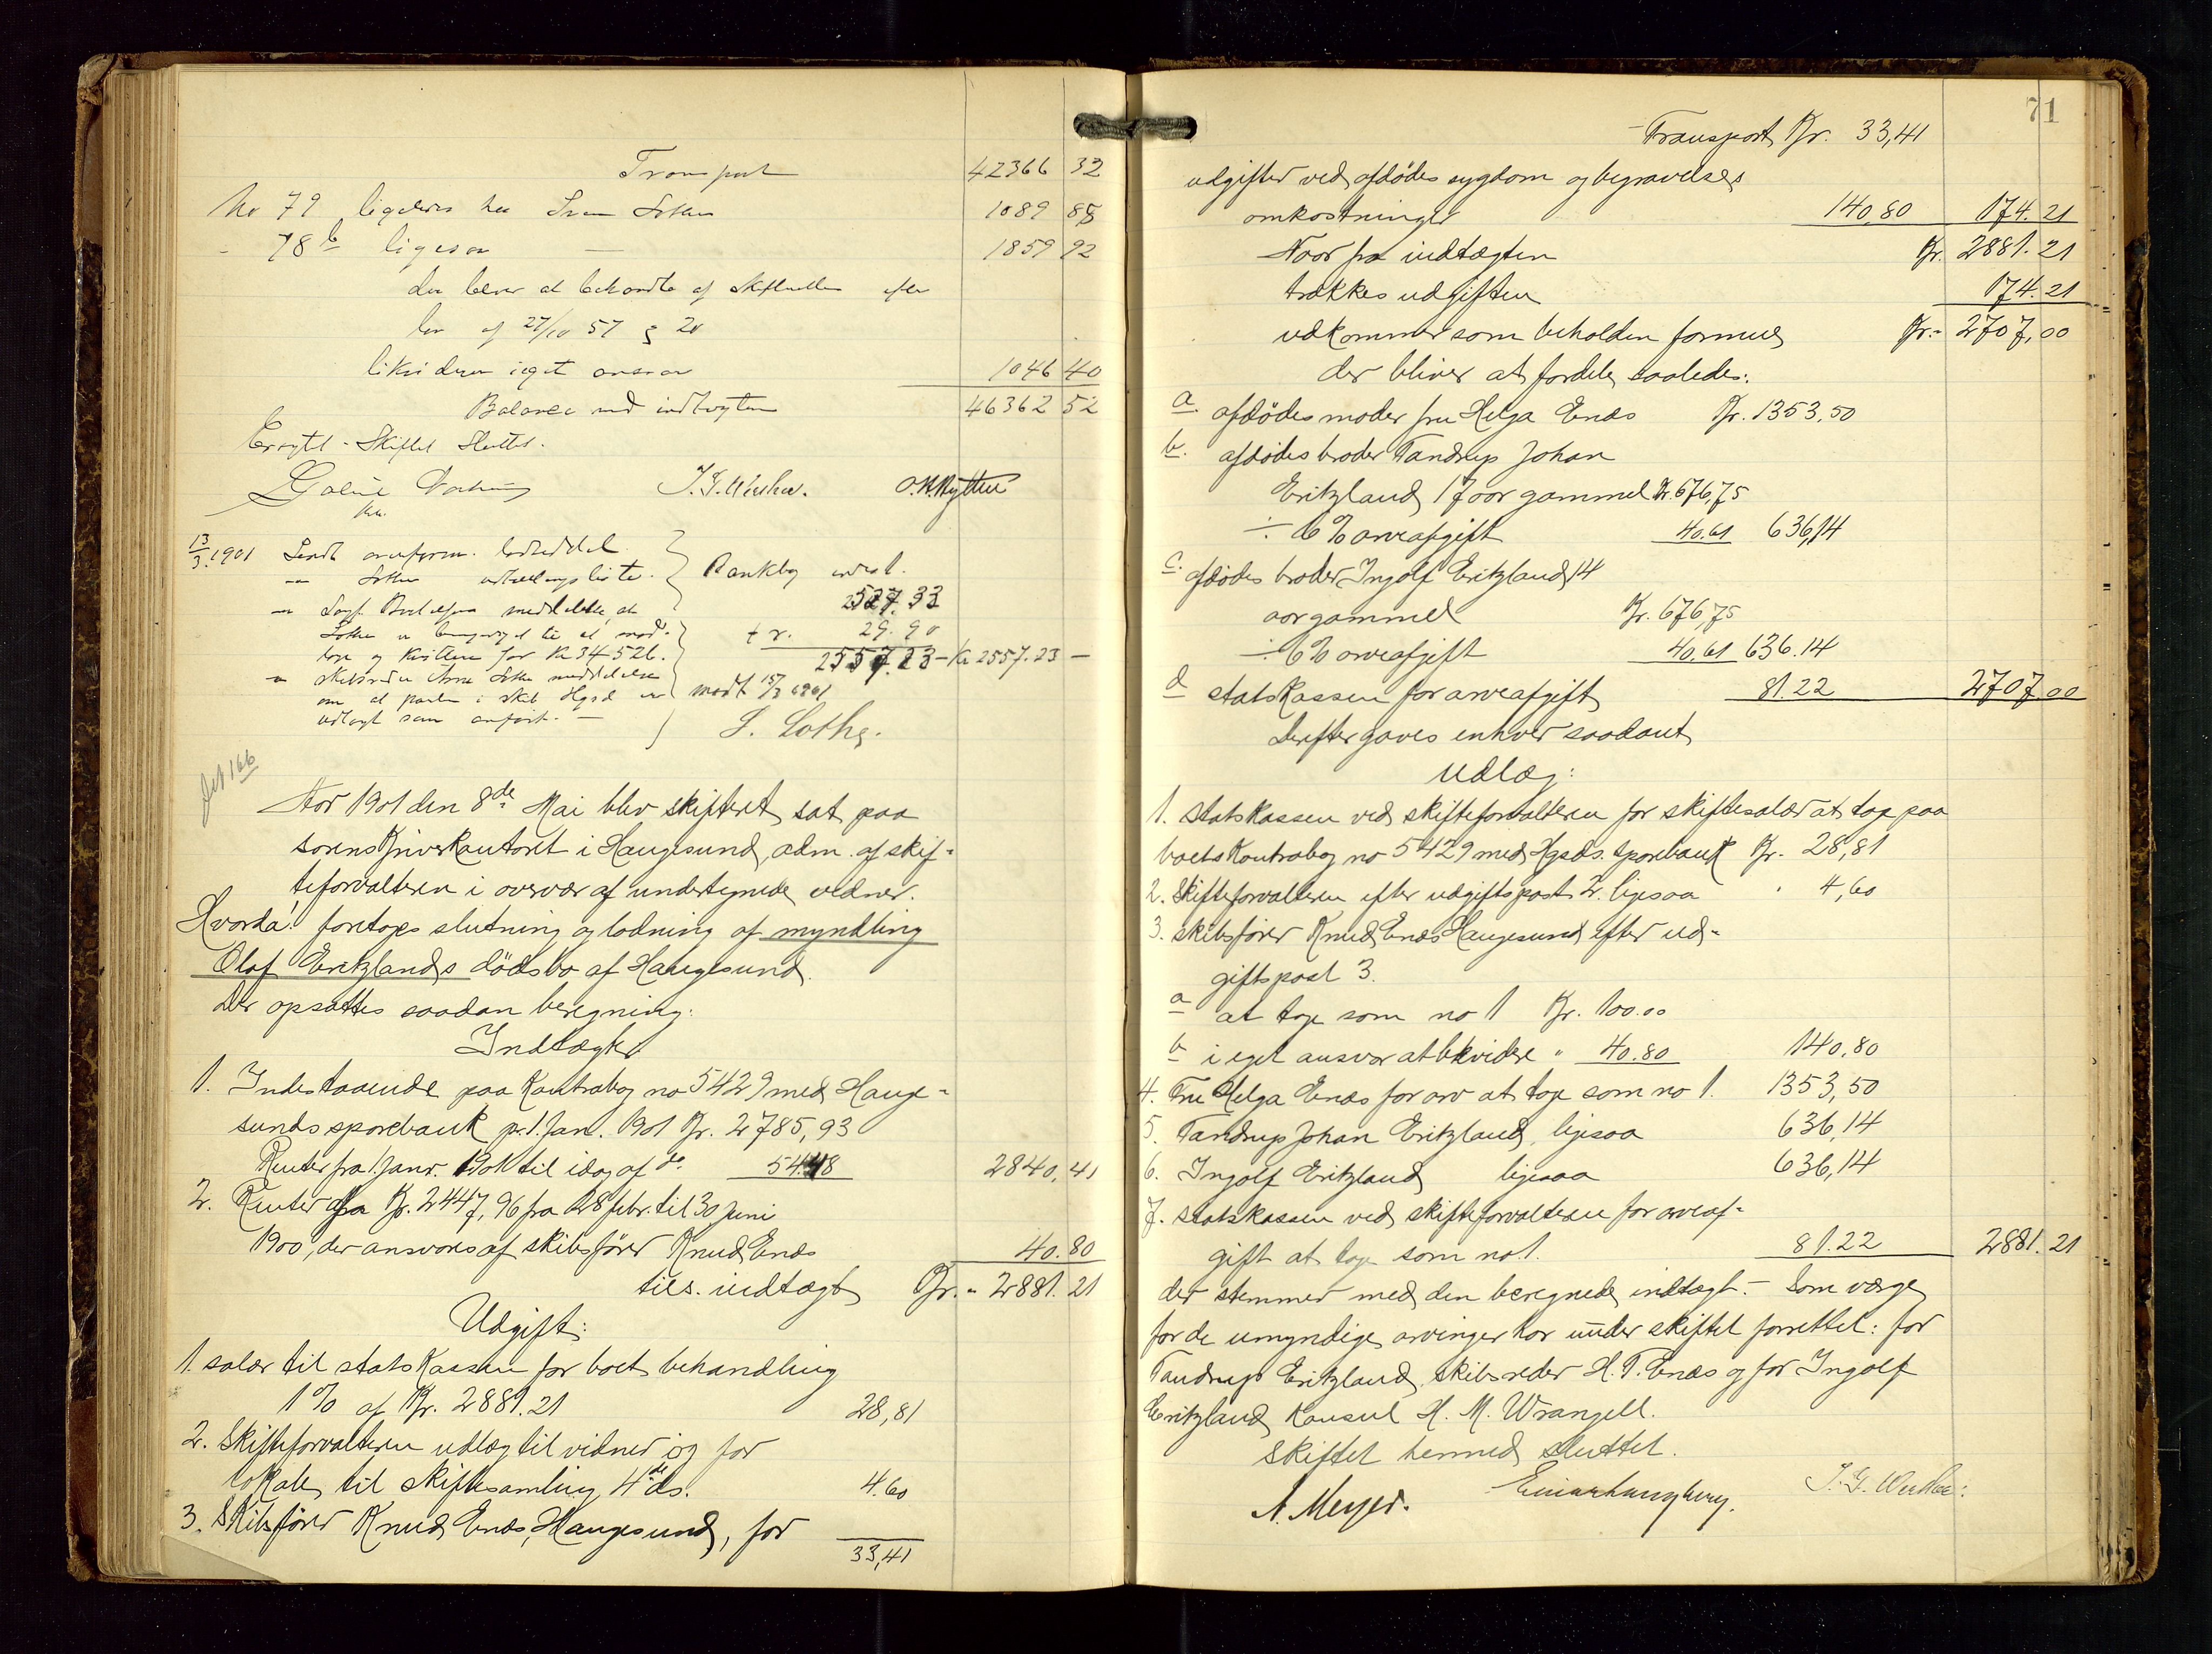 Transport 42366 32
No 79 ligeledes hos 1089 85
- 78 b ligesaa — 1859 92
der bliver at behandle af Skifteretten efter
lov af 27/10 57 § 20
likvideres i eget ansvar 1046 40
Balance med indtægten 46362 52
Eragtet - Skiftet sluttet.
O. K. Rytter
13/3 1901 Sendt overform. lodseddel
— Lothe udlodningsliste.
Bankbog indest.
2527.33
+ r. 29.90
2557.23 - Kr 2557.23 —
Lothe er bemyndiget til at mod-
tage og kvittere for Kr 345 26.
om at parten i skib Hgsd er
udlagt som anført. —
modt 15/3 1901
S. Lothe.
Aar 1901 den 8de Mai blev skifteret sat paa
sorenskriverkontoret i Haugesund, adm. af skif-
teforvalteren i overvær af undertegnede vidner.
Hvorda! foretoges slutning og lodning af myndling
Olaf Eritzlands dödsbo af Haugesund.
Der opsattes saadan beregning:
Indtægter
1. Indestaaende paa Kontrabog no 5429 med Hauge-
sunds sparebank pr. 1. Jan. 1901 Kr. 2785,93
Renter fra 1 Janr. 1901 til idag af do. 54.48 2840,41
2. Renter af Kr. 2447,96 fra 28 febr. til 30 juni
1900, der ansvares af skibsfører Knud Enæs 40.80
tils. indtægt Kr. - 2881.21
Udgift:
1. salær til statskassen for boets behandling
1% af Kr. 2881.21 28,81
2. Skifteforvalteren udlæg til vidner og for
lokale til skiftesamling 4de ds. 4.60
3. Skibsfører Knud Enæs, Haugesund, for
33,41
71
Transport Kr. 33,41
udgifter ved afdödes sygdom og begravelses
omkostninger 140,80 174.21
Naar fra indtægten Kr. 2881.21
trækkes udgiften 174.21
udkommer som beholden formue Kr.- 2707,00
der bliver at fordele saaledes:
a. afdödes moder fru Helga Enæs Kr. 1353,50
b. afdödes broder Tandrup Johan
Eritzland 17 aar gammel Kr. 676,75
÷ 6% arveafgift 40.61 636,14
c. afdödes broder Ingolf Eritzland 14
aar gammel Kr. 676,75
÷ 6% arveafgift 40,61 636.14
d statskassen for arveafgift 81.22 2707.00
Derefter gaves enhver saadant
Udlæg:
1. statskassen ved skifteforvalteren for skiftesalær at tage paa
boets Kontrabog no 5429 med Hgsds. sparebank Kr. 28,81
2. Skifteforvalteren efter udgiftspost 2. ligesaa " 4,60
3. skibsfører Knud Enæs Haugesund efter ud-
giftspost 3.
a at tage som no 1 Kr. 100.00
b i eget ansvar at likvidere " 40.80 140,80
4. Fru Helga Enæs for arv at tage som no 1. 1353,50
5. Tandrup Johan Eritzland, ligesaa 636,14
6. Ingolf Eritzland ligesaa 636,14
7. statskassen ved skifteforvalteren for arveaf-
gift at tage som no 1. 81.22 2881.21
der stemmer med den beregnede indtægt. - Som værge
for de umyndige arvinger har under skiftet forrettet: for
Tandrup Eritzland skibsreder H. T. Enæs og for Ingolf
Eritzland Konsul H. M. Wrangell.
Skiftet hermed sluttet.
A. Meyer.